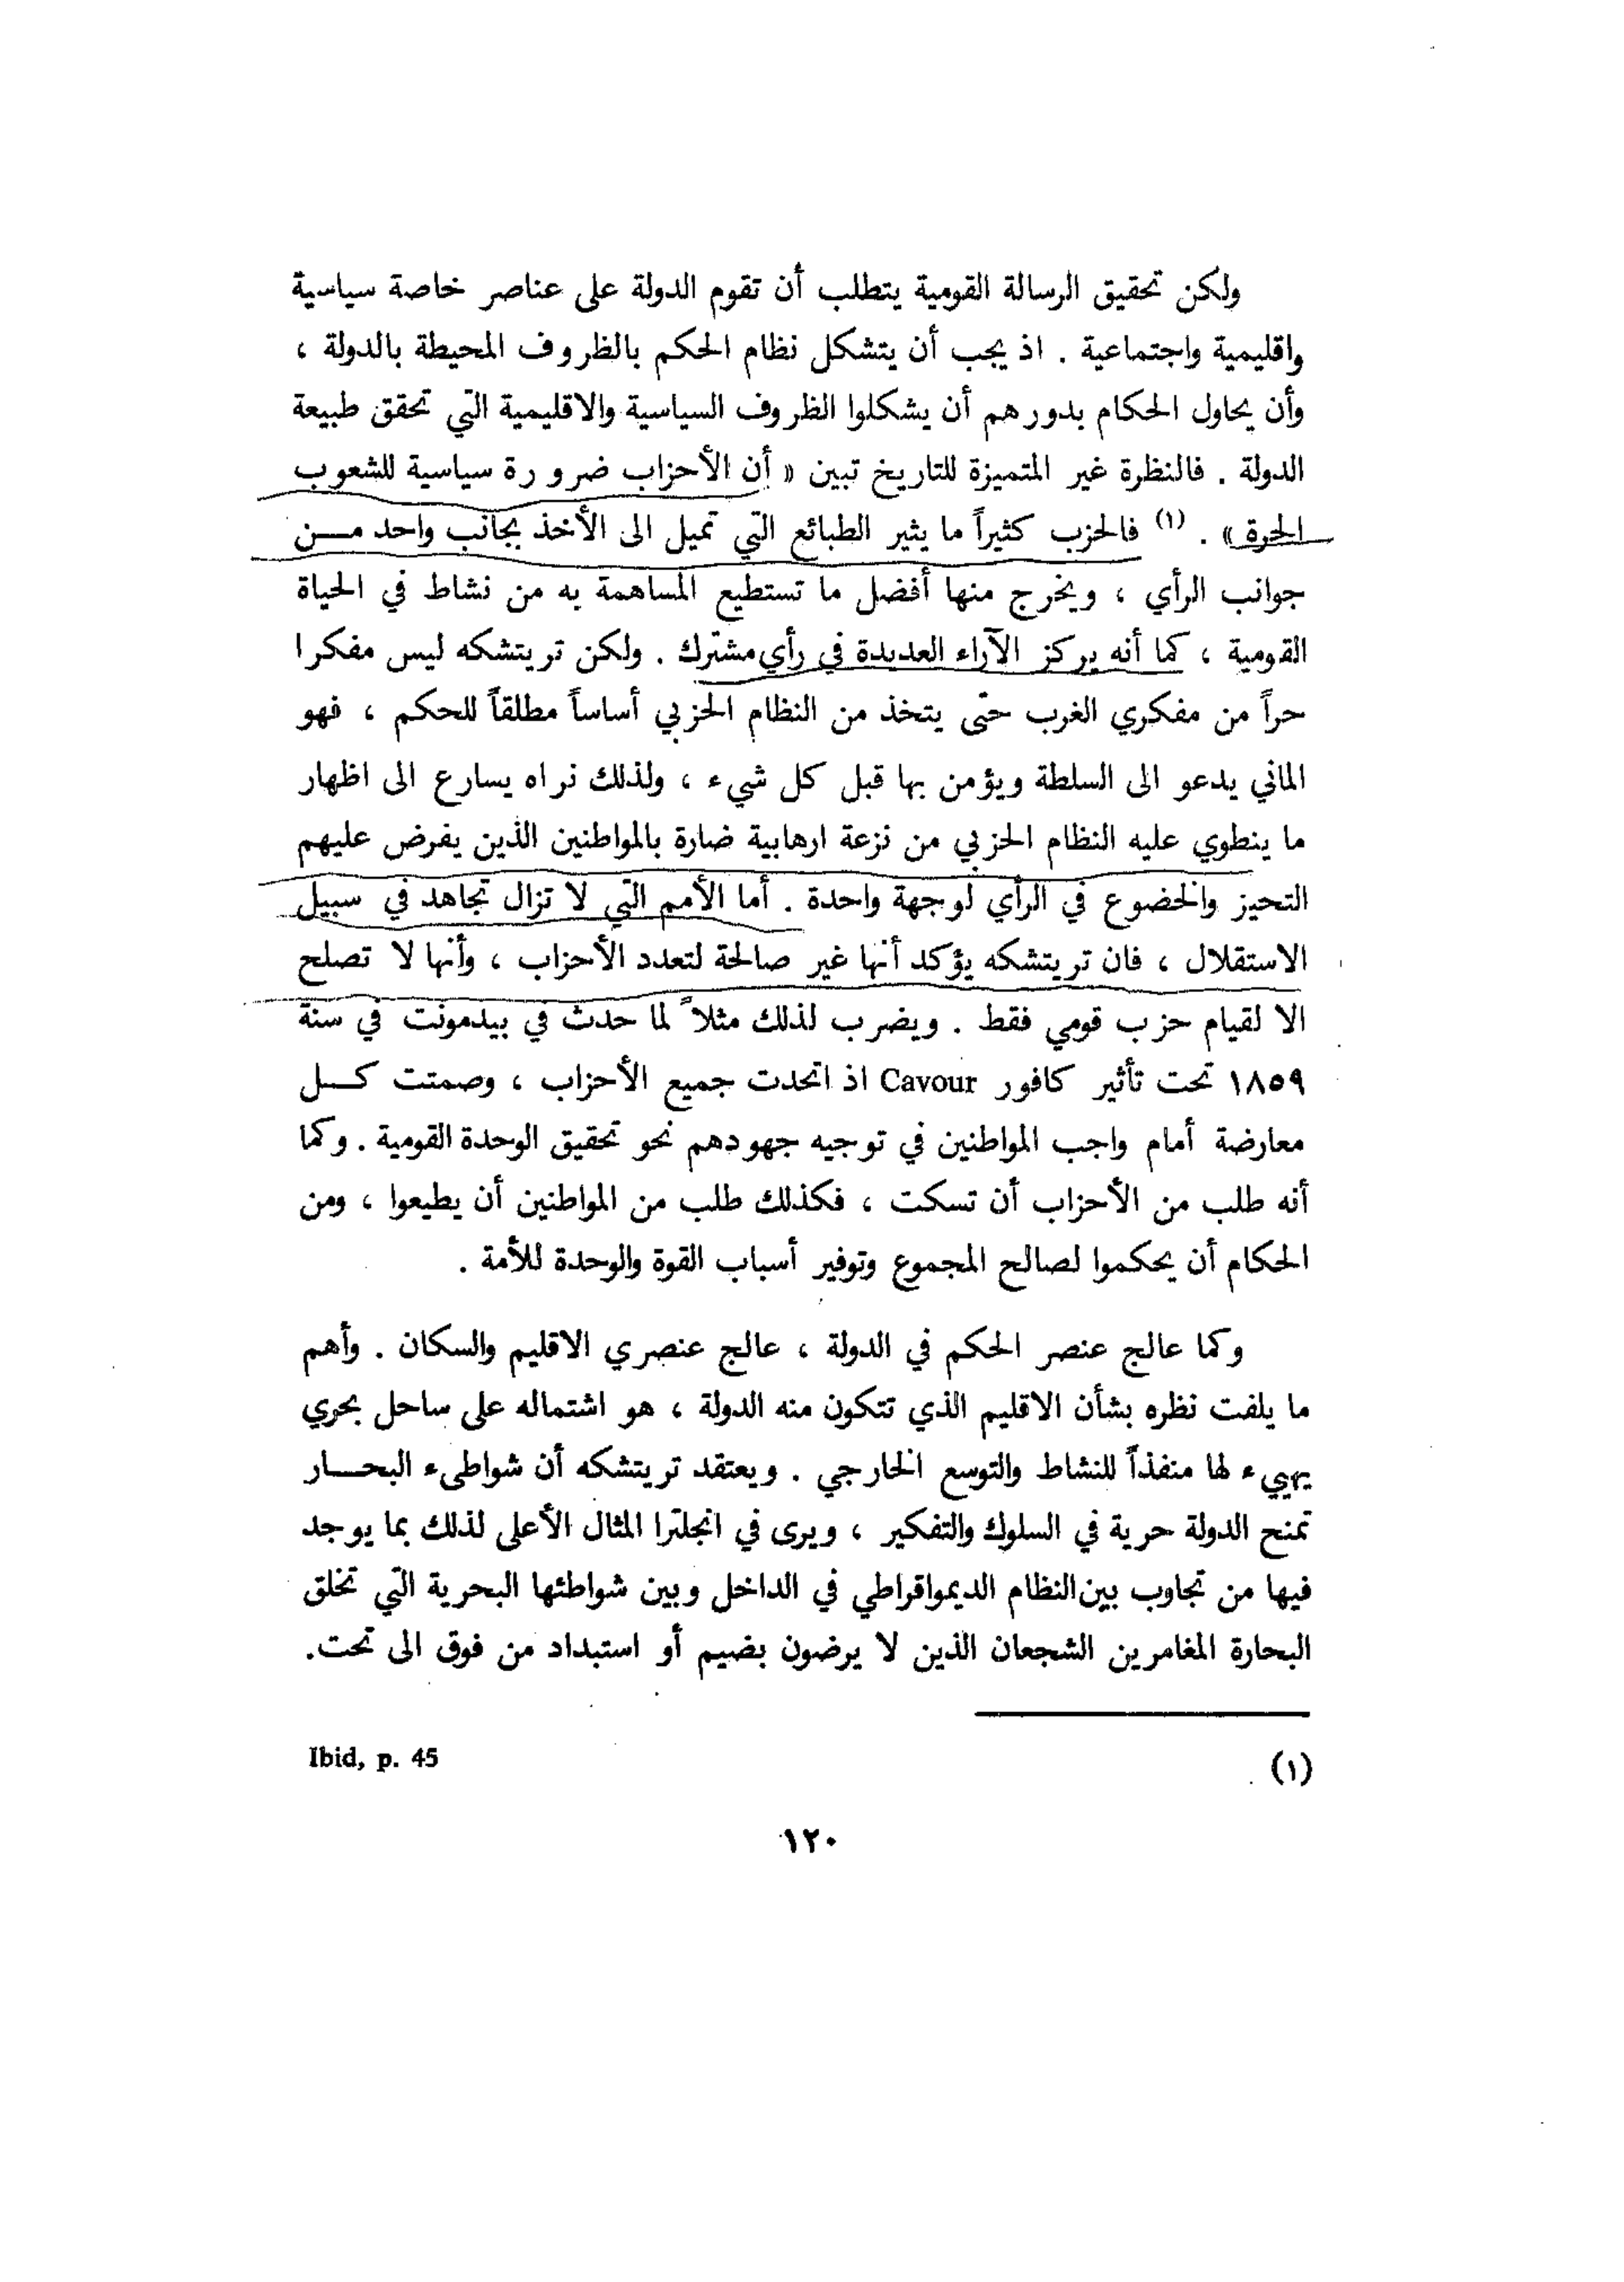 ولكن تحقيق الرسالة القومية يتطلب أن تقوم الدولة على عناصر خاصة سياسية
واقليمية واجتماعية . اذ يجب أن يتشكل نظام الحكم بالظروف المحيطة بالدولة ،
وأن يحاول الحكام بدورهم أن يشكلوا الظروف السياسية والاقليمية التي تحقق طبيعة
الدولة . فالنظرة غير المتميزة للتاريخ تبين « أن الأحزاب ضرورة سياسية للشعوب
الحرة » . (١) فالحزب كثيراً ما يثير الطبائع التي تميل الى الأخذ بجانب واحد مــن
جوانب الرأي ، ويخرج منها أفضل ما تستطيع المساهمة به من نشاط في الحياة
القومية ، كما أنه يركز الآراء العديدة في رأي مشترك . ولكن تريتشكه ليس مفكرا
حراً من مفكري الغرب حتى يتخذ من النظام الحزبي أساساً مطلقاً للحكم ، فهو
الماني يدعو الى السلطة ويؤمن بها قبل كل شيء ، ولذلك نراه يسارع الى اظهار
ما ينطوي عليه النظام الحزبي من نزعة ارهابية ضارة بالمواطنين الذين يفرض عليهم
التحيز والخضوع في الرأي لوجهة واحدة . أما الأمم التي لا تزال تجاهد في سبيل
الاستقلال ، فان تريتشكه يؤكد أنها غير صالحة لتعدد الأحزاب ، وأنها لا تصلح
الا لقيام حزب قومي فقط . ويضرب لذلك مثلاً لما حدث في بيدمونت في سنة
١٨٥٩ تحت تأثير كافور Cavour اذ اتحدت جميع الأحزاب ، وصمتت كــل
معارضة أمام واجب المواطنين في توجيه جهودهم نحو تحقيق الوحدة القومية . وكما
أنه طلب من الأحزاب أن تسكت ، فكذلك طلب من المواطنين أن يطيعوا ، ومن
الحكام أن يحكموا لصالح المجموع وتوفير أسباب القوة والوحدة للأمة .
وكما عالج عنصر الحكم في الدولة ، عالج عنصري الاقليم والسكان . وأهم
ما يلفت نظره بشأن الاقليم الذي تتكون منه الدولة ، هو اشتماله على ساحل بحري
يهيىء لها منفذاً للنشاط والتوسع الخارجي . ويعتقد تريتشكه أن شواطىء البحــار
تمنح الدولة حرية في السلوك والتفكير ، ويرى في انجلترا المثال الأعلى لذلك بما يوجد
فيها من تجاوب بين النظام الديمواقراطي في الداخل وبين شواطئها البحرية التي تخلق
البحارة المغامرين الشجعان الذين لا يرضون بضيم أو استبداد من فوق الى تحت.
(١) Ibid, p. 45
١٢٠